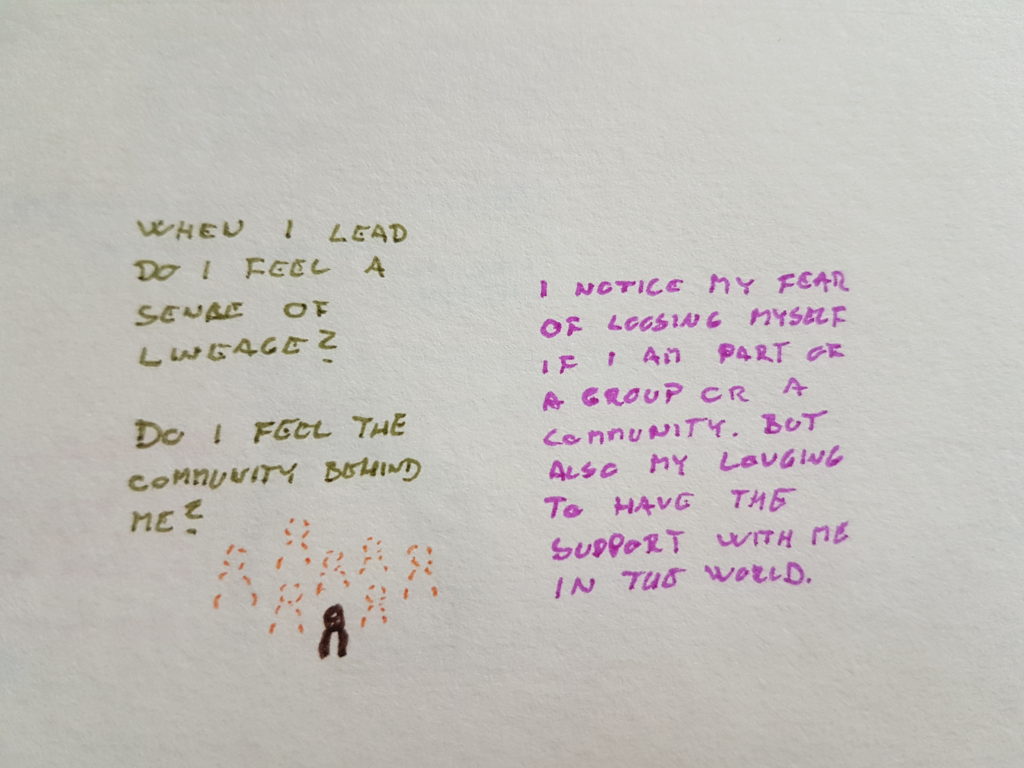 WHEN I LEAD
DO I FEEL A
SENSE OF
LINEAGE?
DO I FEEL THE
COMMUNITY BEHIND
ME?
I NOTICE MY FEAR
OF LOOSING MYSELF
IF I AM PART OF
A GROUP OR A
COMMUNITY. BUT
ALSO MY LONGING
TO HAVE THE
SUPPORT WITH ME
IN THE WORLD.